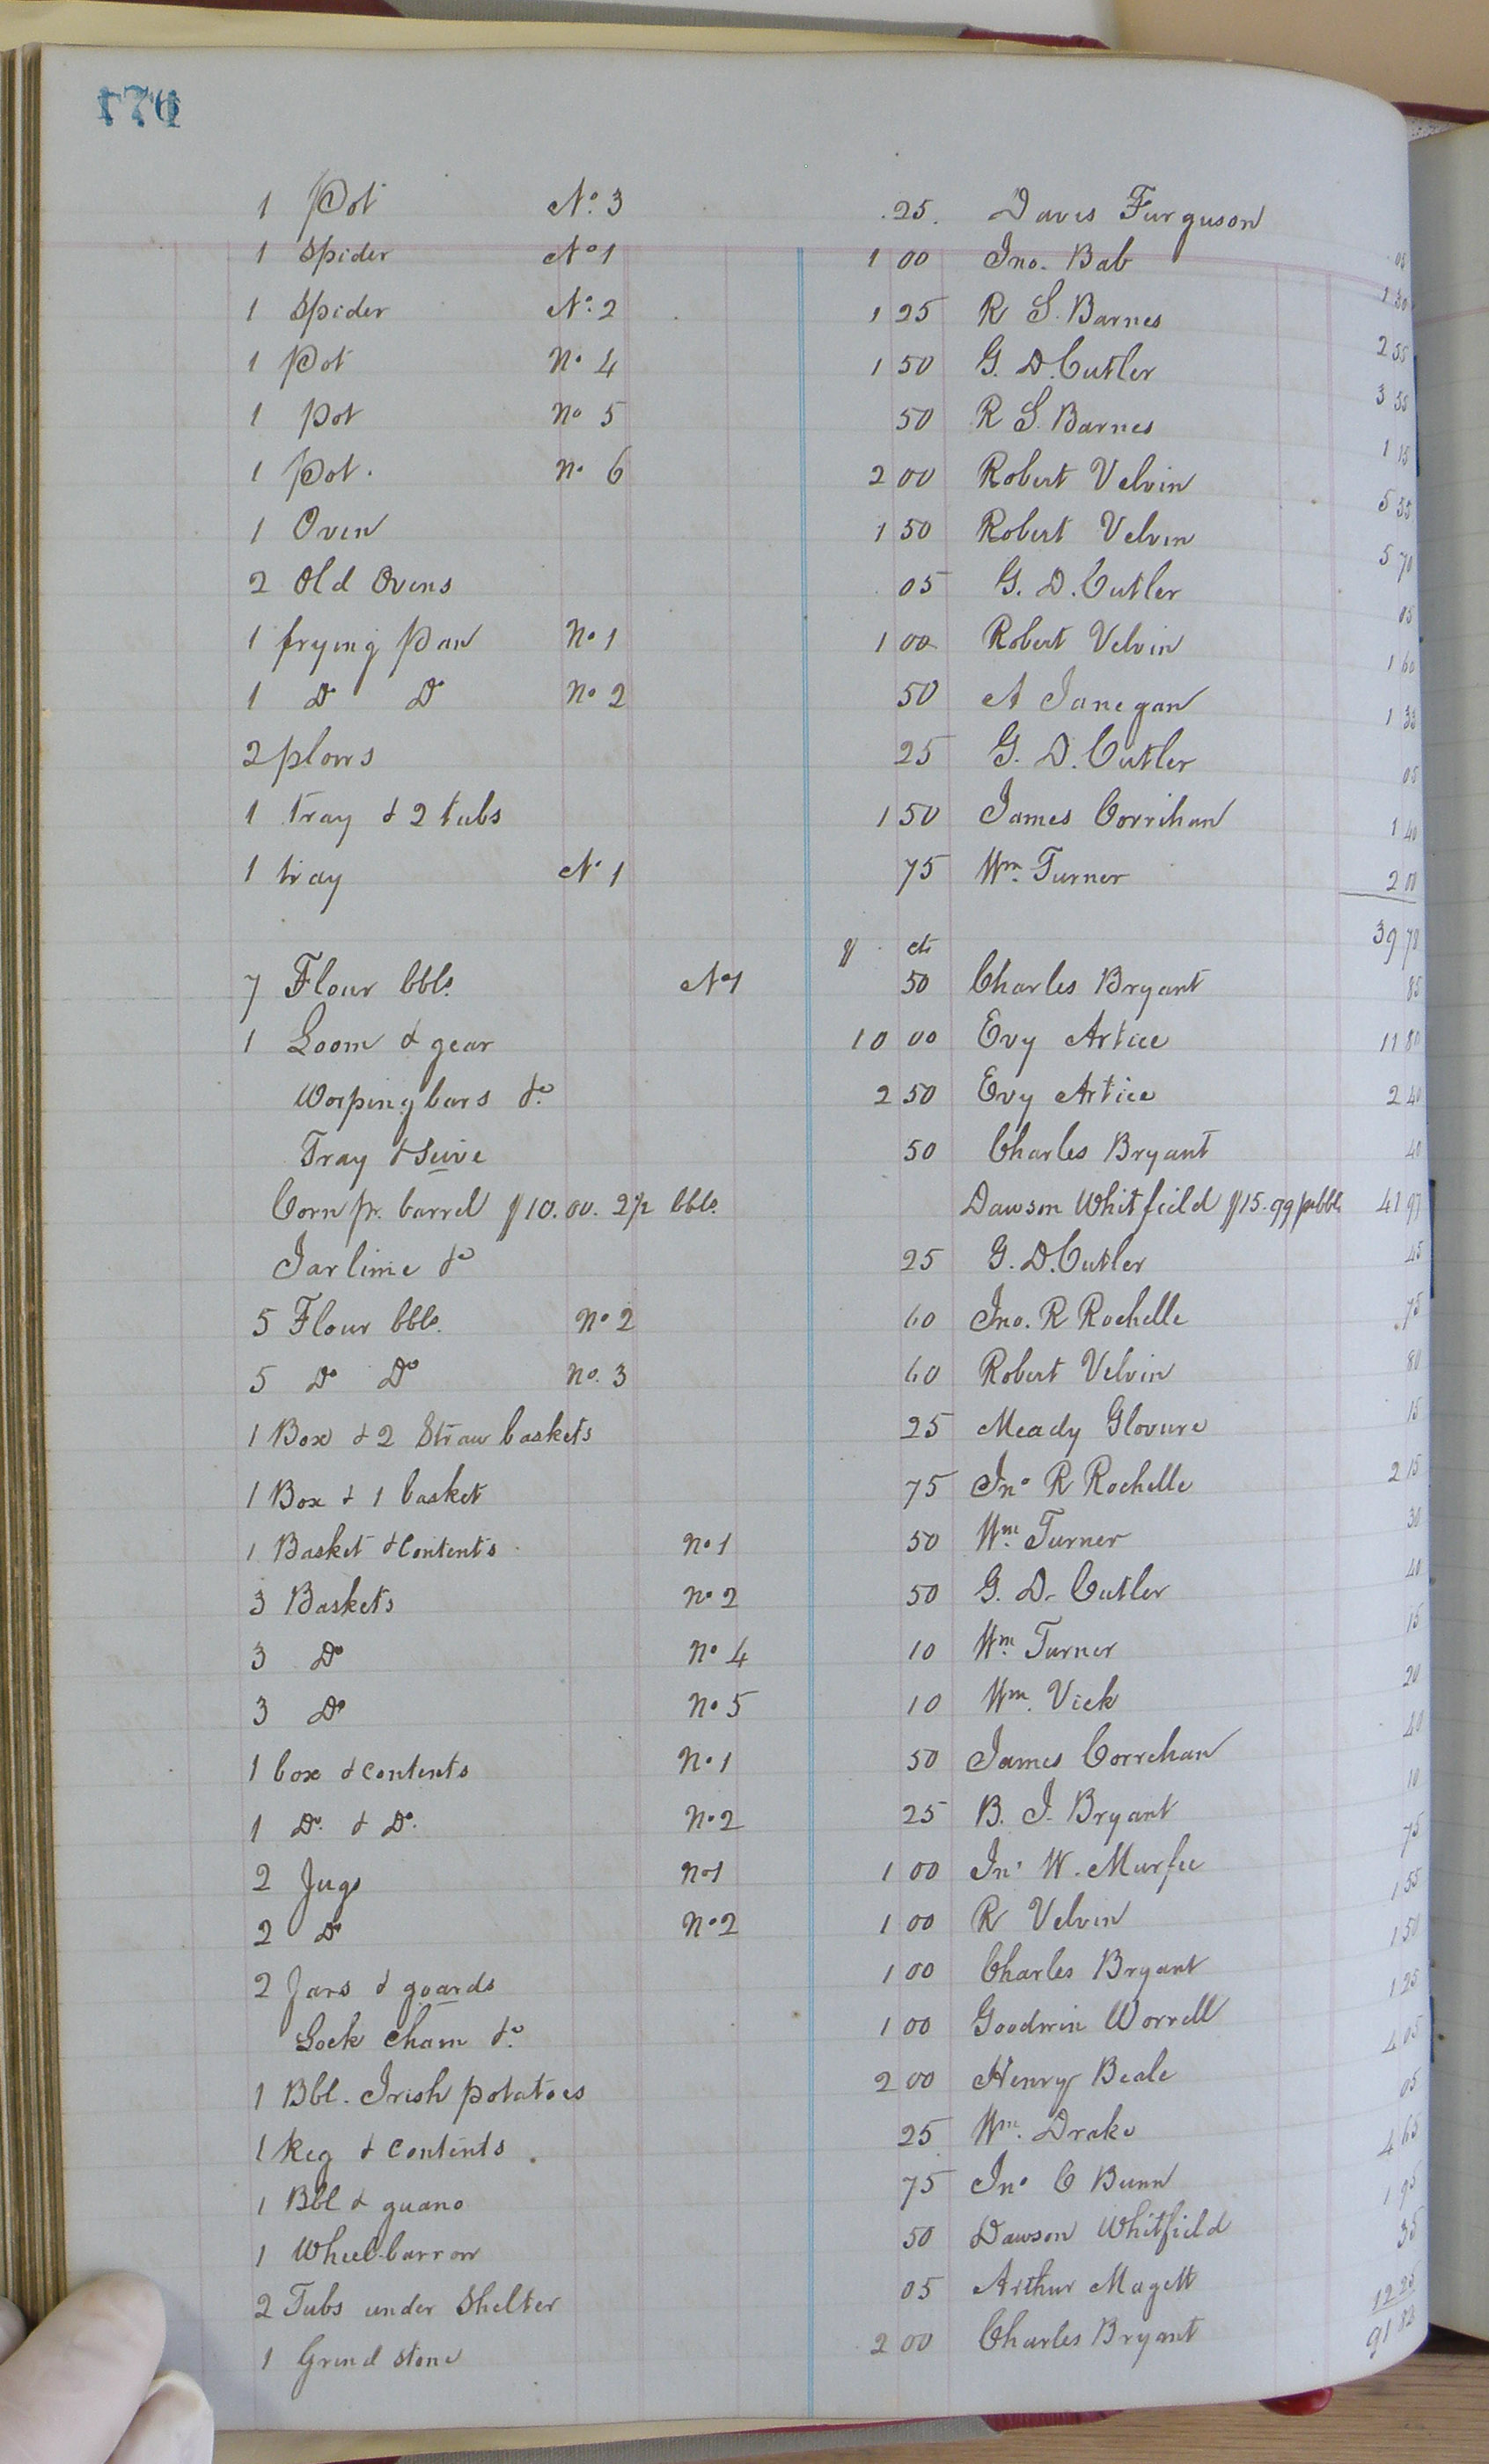 176
1 Pot No. 3 .25. Davis Furguson 05
1 Spider No 1 1 00 Jno. Bab 1 30
1 Spider No. 2 1 25 R S. Barnes 2 55
1 Pot No 4 1 50 G. D. Cutler 3 55
1 Pot No 5 50 R S. Barnes 1 15
1 Pot. No 6 2 00 Robert Velvin 5 55
1 Oven 1 50 Robert Velvin 5 70
2 Old Ovens 05 G. D. Cutler 05
1 frying Pan No 1 1 00 Robert Velvin 1 60
1 Do Do No 2 50 A Janegan 1 35
2 plows 25 G. D. Cutler 05
1 Tray & 2 tubs 1 50 James Corrihan 1 40
1 tray No 1 75 Wm. Turner 2 00
$ cts 39 70
7 Flour bbls. No 1 50 Charles Bryant 85
1 Loom & gear 10 00 Evy Artice 11 80
Worping bars &c. 2 50 Evy Artice 2 40
Tray & Seive 50 Charles Bryant 40
Corn pr. barrel $10.00. 2 1/2 bbls. Dawson Whitfield $15.99 pr bbl. 41 97
Jar lime &c 25 G. D. Cutler 45
5 Flour bbls. No 2 60 Jno. R Rochelle 75
5 Do Do No. 3 60 Robert Velvin 80
1 Box & 2 Straw baskets 25 Meady Glovure 15
1 Box & 1 basket 75 Jno R Rochelle 2 15
1 Basket & Contents No 1 50 Wm. Turner 30
3 Baskets No 2 50 G. D. Cutler 40
3 Do No 4 10 Wm. Turner 15
3 Do No 5 10 Wm. Vick 20
1 box & contents No 1 50 James Correhan 40
1 Do. & Do. No 2 25 B. J. Bryant 10
2 Jugs No 1 1 00 Jno W. Murfee 75
2 Do No 2 1 00 R Velvin 1 55
2 Jars & goards 1 00 Charles Bryant 1 50
Lock Cham &c. 1 00 Goodwin Worrell 1 25
1 Bbl. Irish potatoes 2 00 Henry Beale 4 05
1 Keg & contents. 25 Wm. Drake 05
1 Bbl & guano 75 Jno C Bunn 4 65
1 Wheel-barrow 50 Dawson Whitfield 1 95
2 Tubs under Shelter 05 Arthur Magett 35
1 Grind stone 2 00 Charles Bryant 12 25
91 82